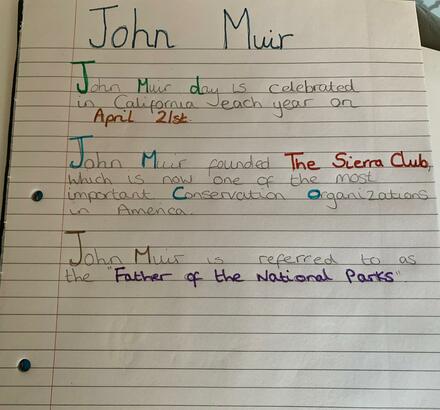 John Muir
John Muir day is celebrated
in California each year on
April 21st.
John Muir founded The Sierra Club,
which is now one of the most
important Conservation Organizations
in America.
John Muir is referred to as
the "Father of the National Parks".